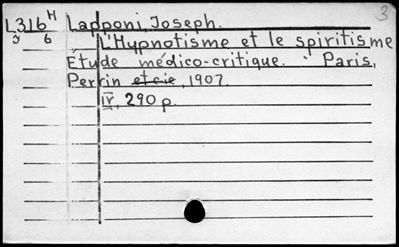 3
L316H Lapponi, Joseph.
3 6 L'Hypnotisme et le spiritisme
Etude médico-critique. Paris,
Perrin et cie, 1907.
IV, 290 p.